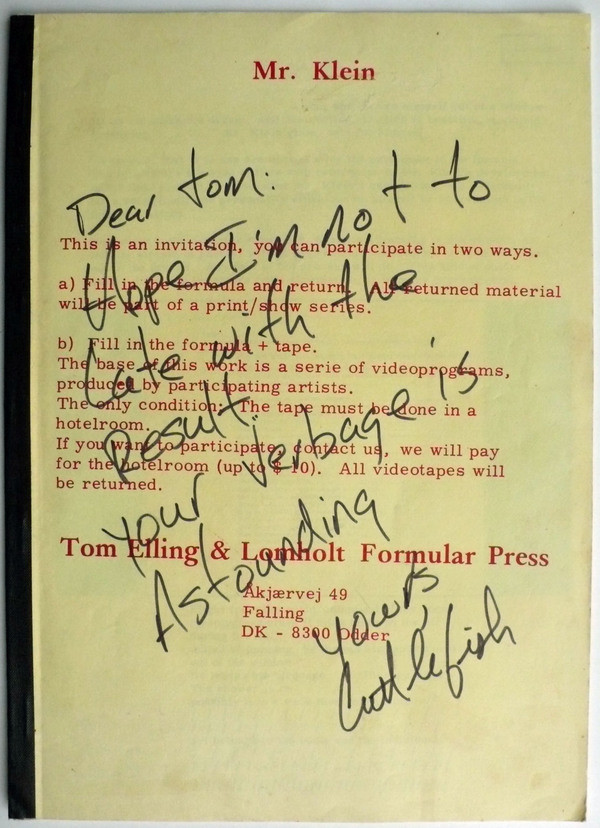 Mr. Klein
This is an invitation, you can participate in two ways.
a) Fill in the formula and return. All returned material
will be part of a print/show series.
b) Fill in the formula + tape.
The base of this work is a serie of videoprograms,
produced by participating artists.
The only condition: The tape must be done in a
hotelroom.
If you want to participate, contact us, we will pay
for the hotelroom (up to $ 10). All videotapes will
be returned.
Tom Elling & Lomholt Formular Press
Akjærvej 49
Falling
DK - 8300 Odder
Dear tom:
Hope I'm not to
Late with the
Result.
Your Verbage is
Astounding
Yours,
Cuttlefish